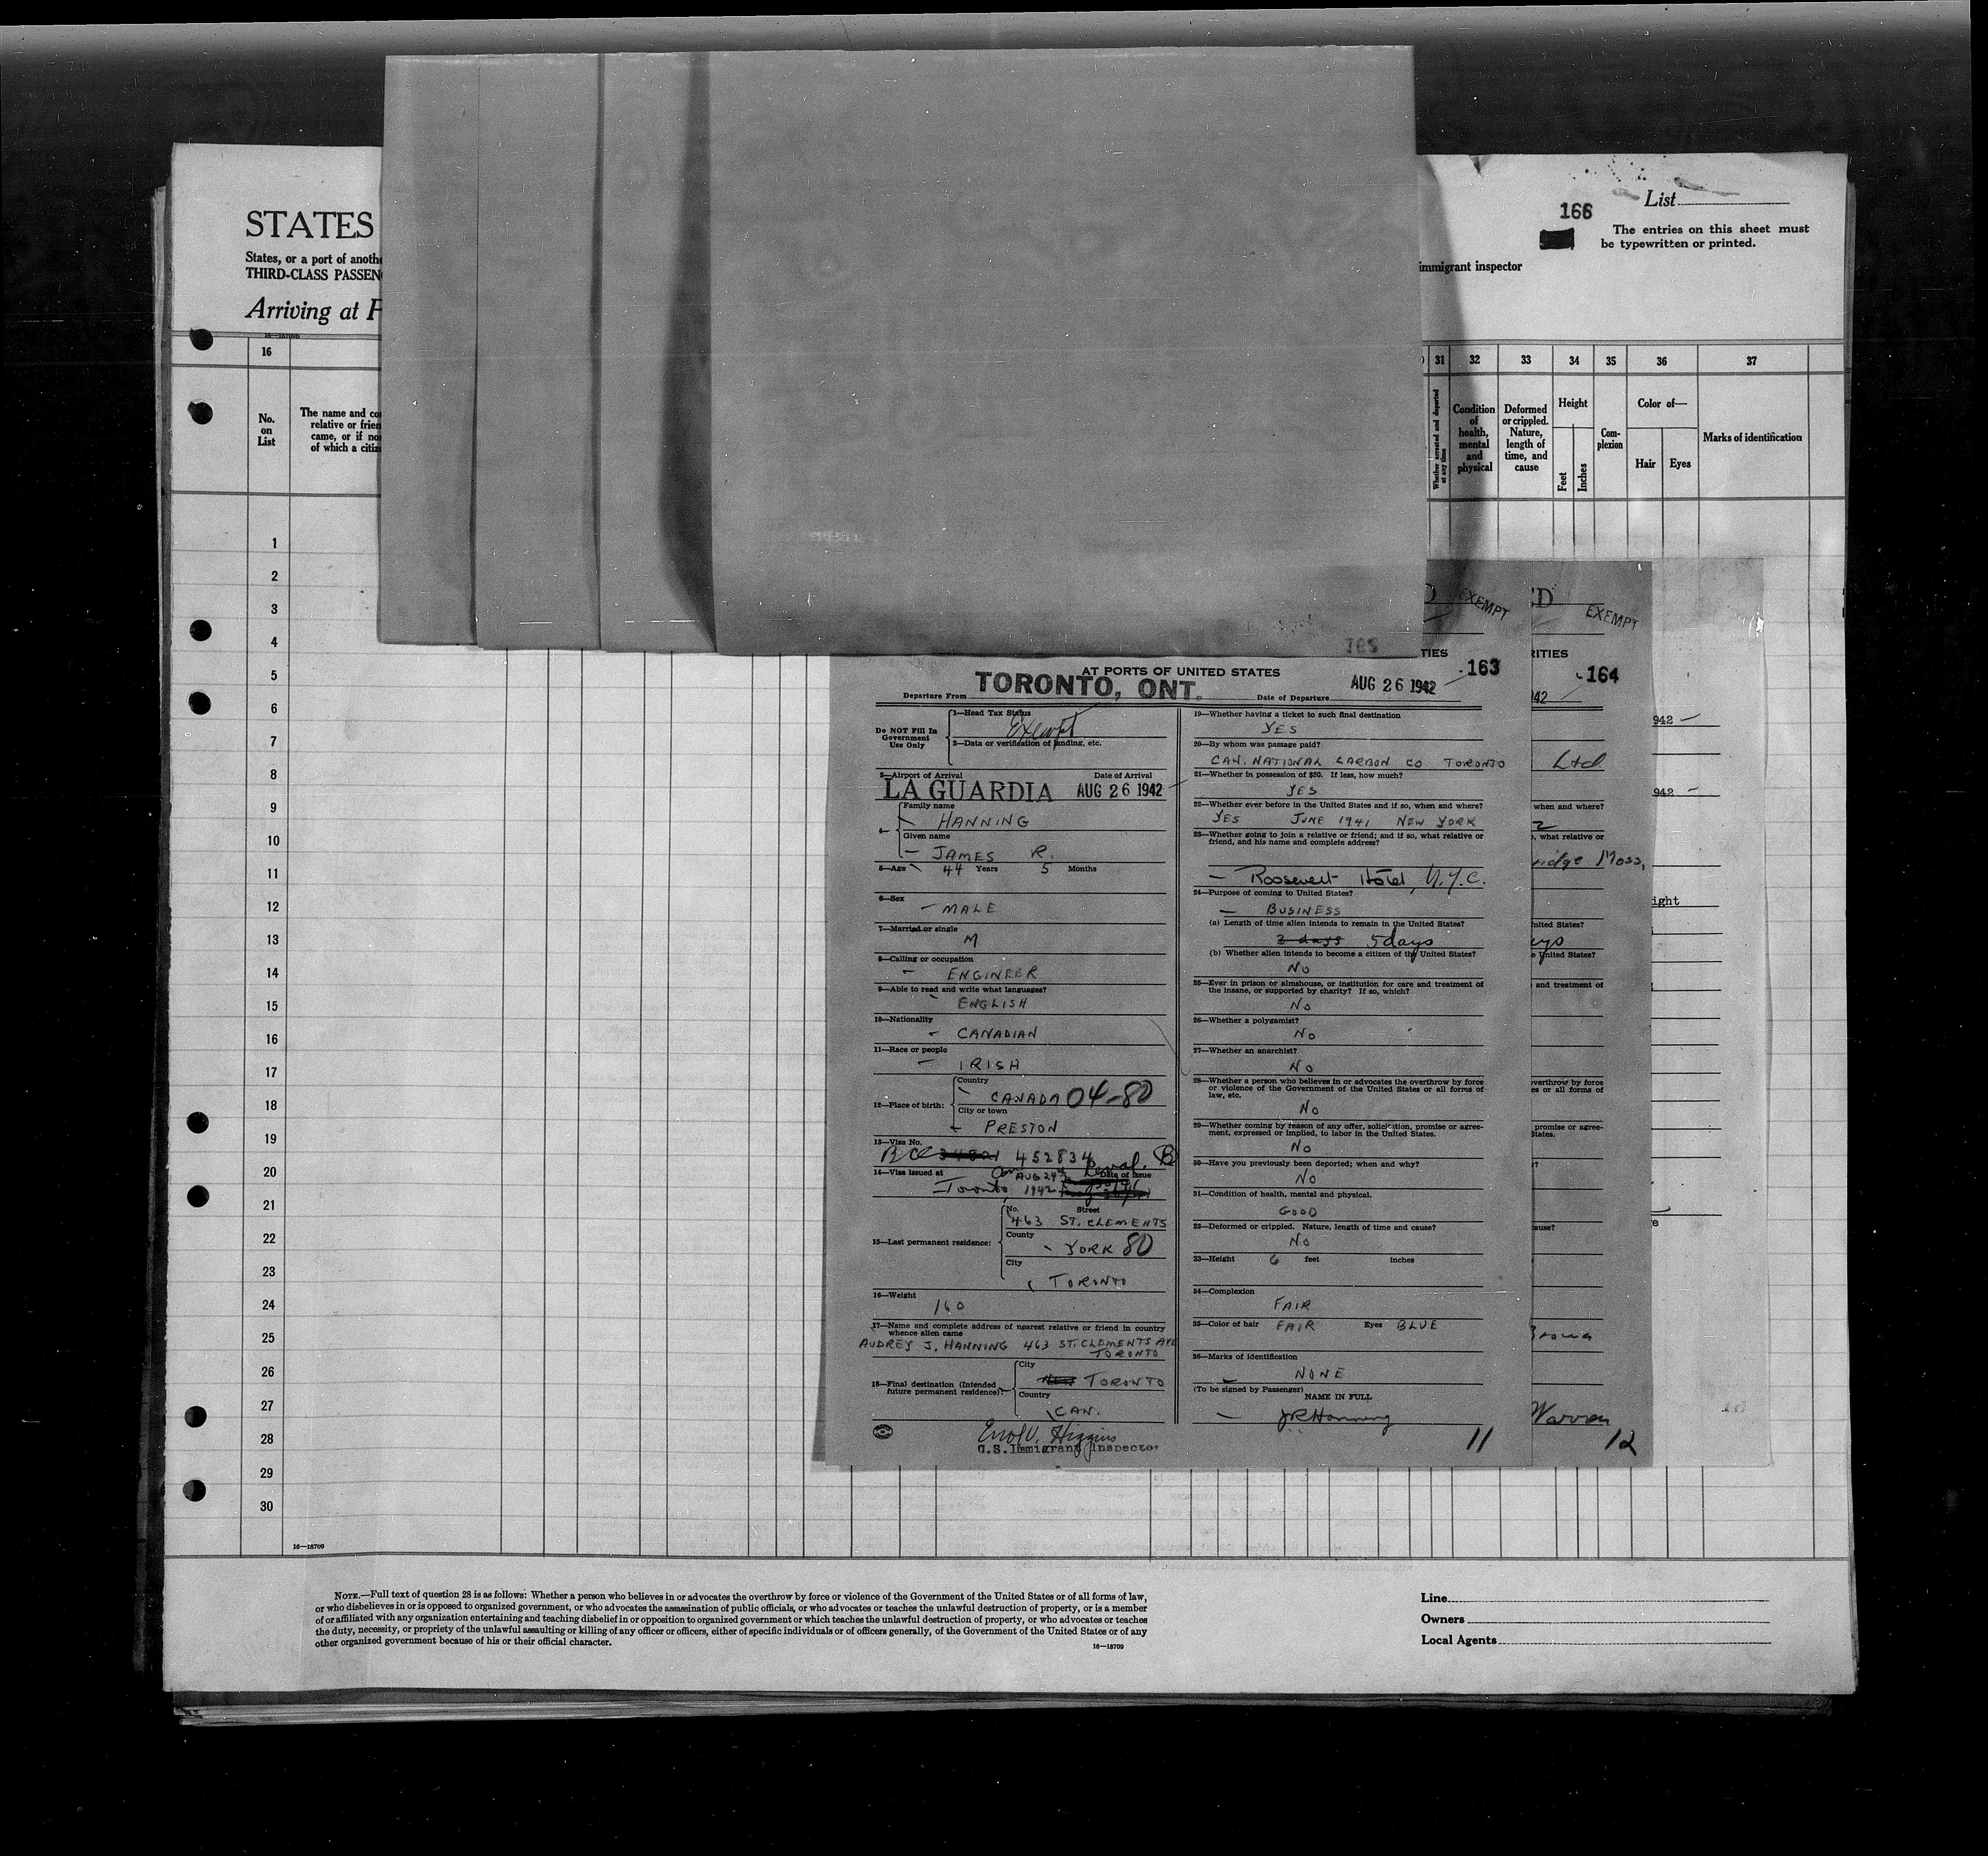 STATES
States, or a port of anoth
THIRD-CLASS PASSEN
Arriving at P
166
List
The entries on this sheet must
be typewritten or printed.
immigrant inspector
16
31
32
33
34
35
36
37
No.
on
List
The name and co
relative or frien
came, or if no
of which a citiz
Whether arrested and deported
at any time
Condition
of
health,
mental
and
physical
Deformed
or crippled.
Nature,
length of
time, and
cause
Height
Feet
Inches
Com-
plexion
Color of—
Hair
Eyes
Marks of identification
1
2
3
4
5
6
7
8
9
10
11
12
13
14
15
16
17
18
19
20
21
22
23
24
25
26
27
28
29
30
EXEMPT
TIES
163
165
AT PORTS OF UNITED STATES
Departure From TORONTO, ONT.
Date of Departure AUG 26 1942
Do NOT Fill In
Government
Use Only
1—Head Tax Status
Exempt
2—Data or verification of landing, etc.
3—Airport of Arrival
Date of Arrival
LA GUARDIA AUG 26 1942
Family name
HANNING
Given name
JAMES R.
5—Age 44 Years 5 Months
6—Sex
MALE
7—Married or single
M
8—Calling or occupation
ENGINEER
9—Able to read and write what languages?
ENGLISH
10—Nationality
CANADIAN
11—Race or people
IRISH
12—Place of birth:
Country
CANADA 04-80
City or town
PRESTON
13—Visa No.
452834
14—Visa issued at
Date of issue
Toronto AUG 24 1942
15—Last permanent residence:
No. Street
463 ST. CLEMENTS
County
YORK 80
City
TORONTO
16—Weight
160
17—Name and complete address of nearest relative or friend in country
whence alien came
AUDREY J. HANNING 463 ST. CLEMENTS AVE
TORONTO
18—Final destination (Intended
future permanent residence):
City
TORONTO
Country
CAN.
U.S. Immigrant Inspector
19—Whether having a ticket to such final destination
YES
20—By whom was passage paid?
CAN. NATIONAL CARBON CO TORONTO
21—Whether in possession of $50. If less, how much?
YES
22—Whether ever before in the United States and if so, when and where?
YES JUNE 1941 NEW YORK
23—Whether going to join a relative or friend; and if so, what relative or
friend, and his name and complete address?
Roosevelt Hotel, N.Y.C.
24—Purpose of coming to United States?
BUSINESS
(a) Length of time alien intends to remain in the United States?
2 days 5 days
(b) Whether alien intends to become a citizen of the United States?
No
25—Ever in prison or almshouse, or institution for care and treatment of
the insane, or supported by charity? If so, which?
No
26—Whether a polygamist?
No
27—Whether an anarchist?
No
28—Whether a person who believes in or advocates the overthrow by force
or violence of the Government of the United States or all forms of
law, etc.
No
29—Whether coming by reason of any offer, solicitation, promise or agree-
ment, expressed or implied, to labor in the United States.
No
30—Have you previously been deported; when and why?
No
31—Condition of health, mental and physical.
GOOD
32—Deformed or crippled. Nature, length of time and cause?
No
33—Height 6 feet inches
34—Complexion
FAIR
35—Color of hair FAIR Eyes BLUE
36—Marks of identification
NONE
(To be signed by Passenger)
NAME IN FULL
JR Hanning
11
ED
EXEMPT
RITIES
164
942
Ltd.
when and where?
, what relative or
ridge Moss,
nited States?
ays
e United States?
and treatment of
overthrow by force
es or all forms of
promise or agree-
States.
ause?
Brown
Warren
12
942
942
ight
16—18709
NOTE.—Full text of question 28 is as follows: Whether a person who believes in or advocates the overthrow by force or violence of the Government of the United States or of all forms of law,
or who disbelieves in or is opposed to organized government, or who advocates the assassination of public officials, or who advocates or teaches the unlawful destruction of property, or is a member
of or affiliated with any organization entertaining and teaching disbelief in or opposition to organized government or which teaches the unlawful destruction of property, or who advocates or teaches
the duty, necessity, or propriety of the unlawful assaulting or killing of any officer or officers, either of specific individuals or of officers generally, of the Government of the United States or of any
other organized government because of his or their official character.
16—18709
Line
Owners
Local Agents